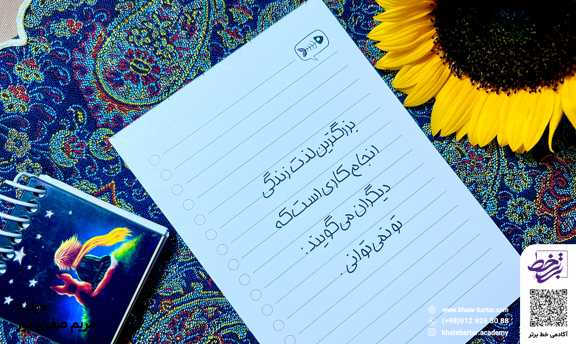 بزرگترین لذت زندگی
انجام کاری است که
دیگران می‌گویند:
تو نمی‌توانی.
خط برتر
آکادمی خط برتر
www.khate-bartar.com
(+98)912 928 50 88
khatebartar.academy